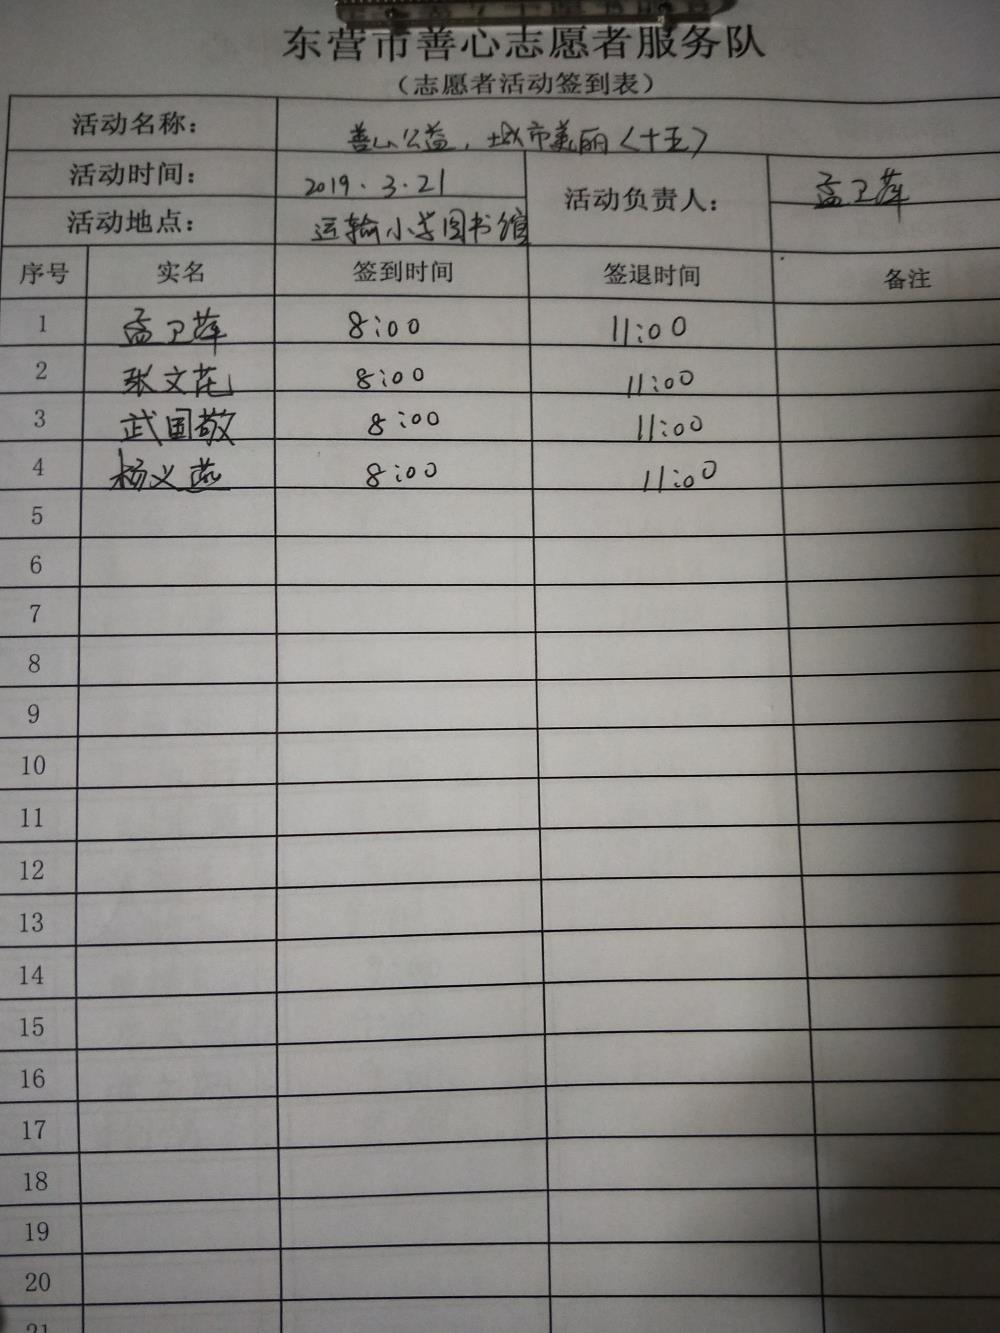 东营市善心志愿者服务队
（志愿者活动签到表）
活动名称： 善心公益，城市美丽（十五）
活动时间： 2019.3.21 活动负责人： 孟卫萍
活动地点： 运输小学图书馆
序号 实名 签到时间 签退时间 备注
1 孟卫萍 8:00 11:00
2 张文花 8:00 11:00
3 武国敬 8:00 11:00
4 杨义燕 8:00 11:00
5
6
7
8
9
10
11
12
13
14
15
16
17
18
19
20
21